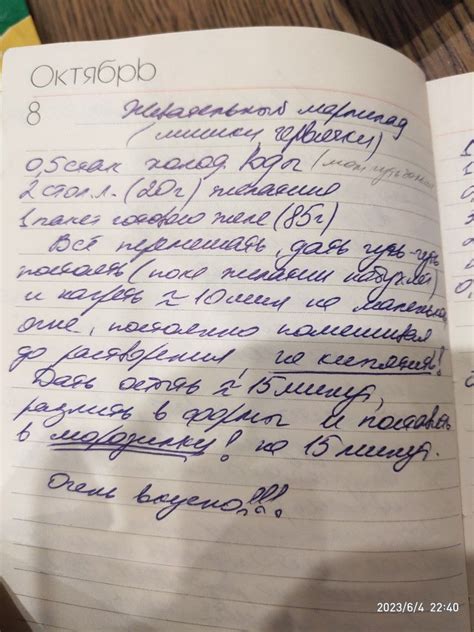 Октябрь
8
Жевательный мармелад
(мишки червячки)
0,5 стак холод воды (мож чуть
2 стол.л. (20г) желатине
1 пакет готового желе (85г)
Всё перемешать, дать чуть-чуть
постоять (пока желатин набухнет)
и нагреть ≈ 10 мин на маленьком
огне, постоянно помешивая
до растворения, не кипятить!
Дать остыть ≈ 15 минут,
разлить в формы и поставить
в морозилку! на 15 минут.
Очень вкусно!!!
2023/6/4 22:40